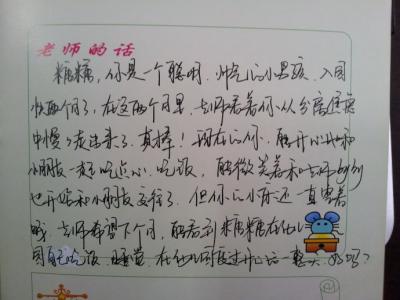 老师的话
糖糖,你是一个聪明、帅气的小男孩,入园
快两个月了,在这两个月里,老师看着你从分离焦虑
中慢慢走出来了,真棒!现在的你,能开心地和
小朋友一起吃点心、吃饭,能微笑着和老师
也开始和小朋友交往了。但你的小床还一直空着
哦,老师希望下个月,能看到糖糖在幼儿
园自己吃饭、睡觉,在幼儿园度过开心的一整天,好吗?